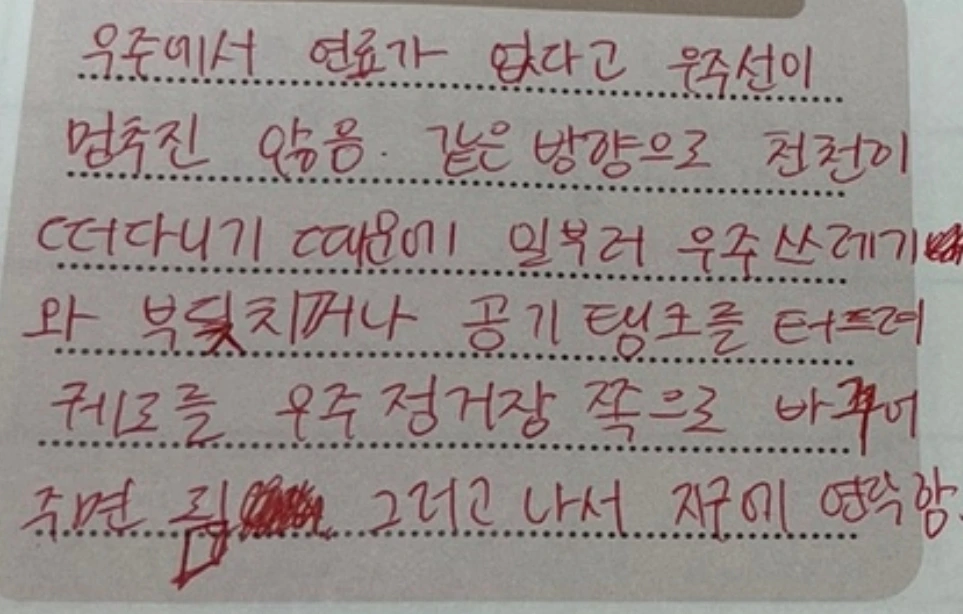 우주에서 연료가 없다고 우주선이
멈추진 않음. 같은 방향으로 천천이
떠다니기 때문에 일부러 우주 쓰레기
와 부딪치꺼나 공기 탱크를 터뜨려
궤도를 우주 정거장 쪽으로 바꾸어
주면 됨 그러고 나서 지구에 연락함.